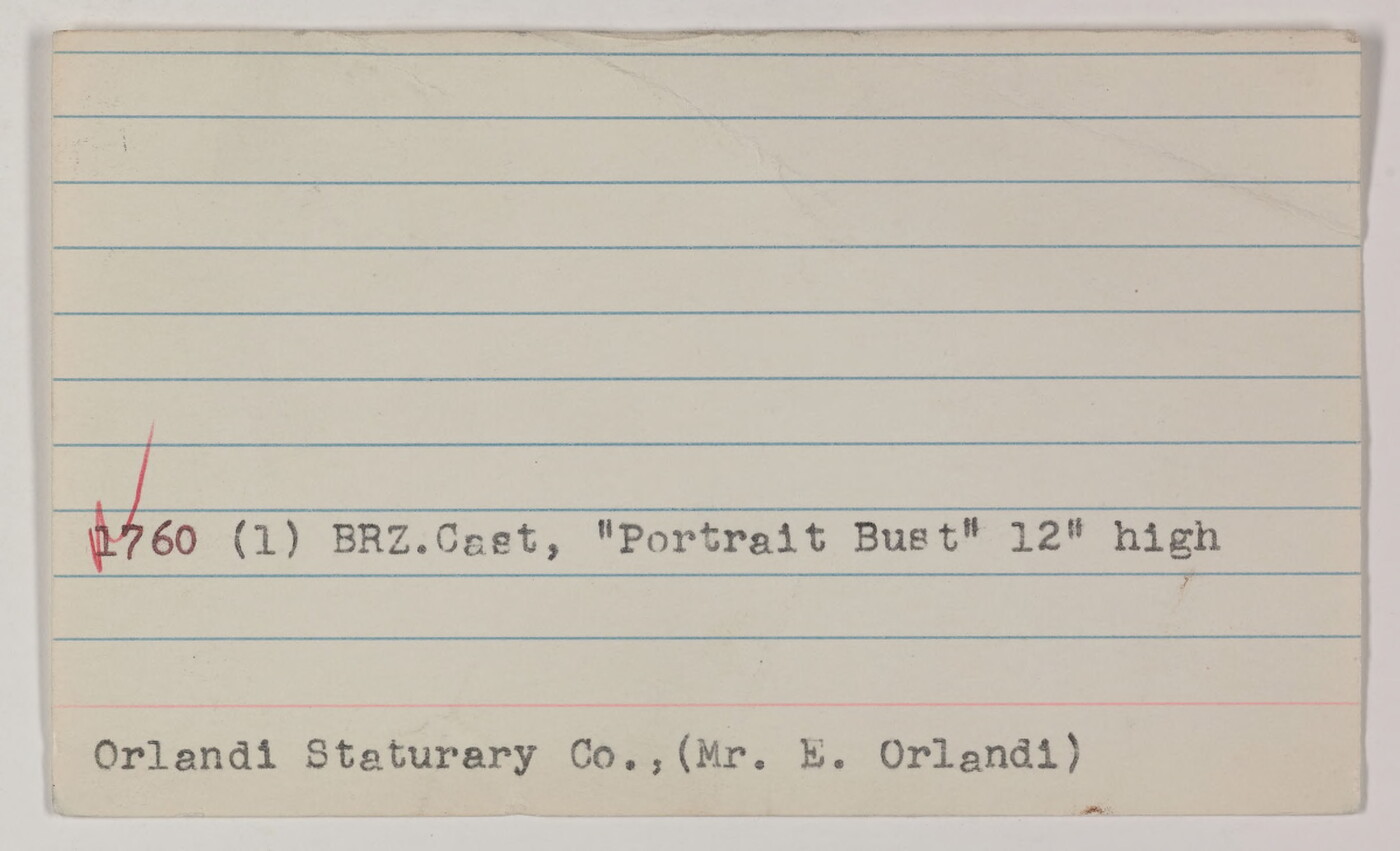 1760 (1) BRZ.Cast, "Portrait Bust" 12" high
Orlandi Staturary Co.,(Mr. E. Orlandi)